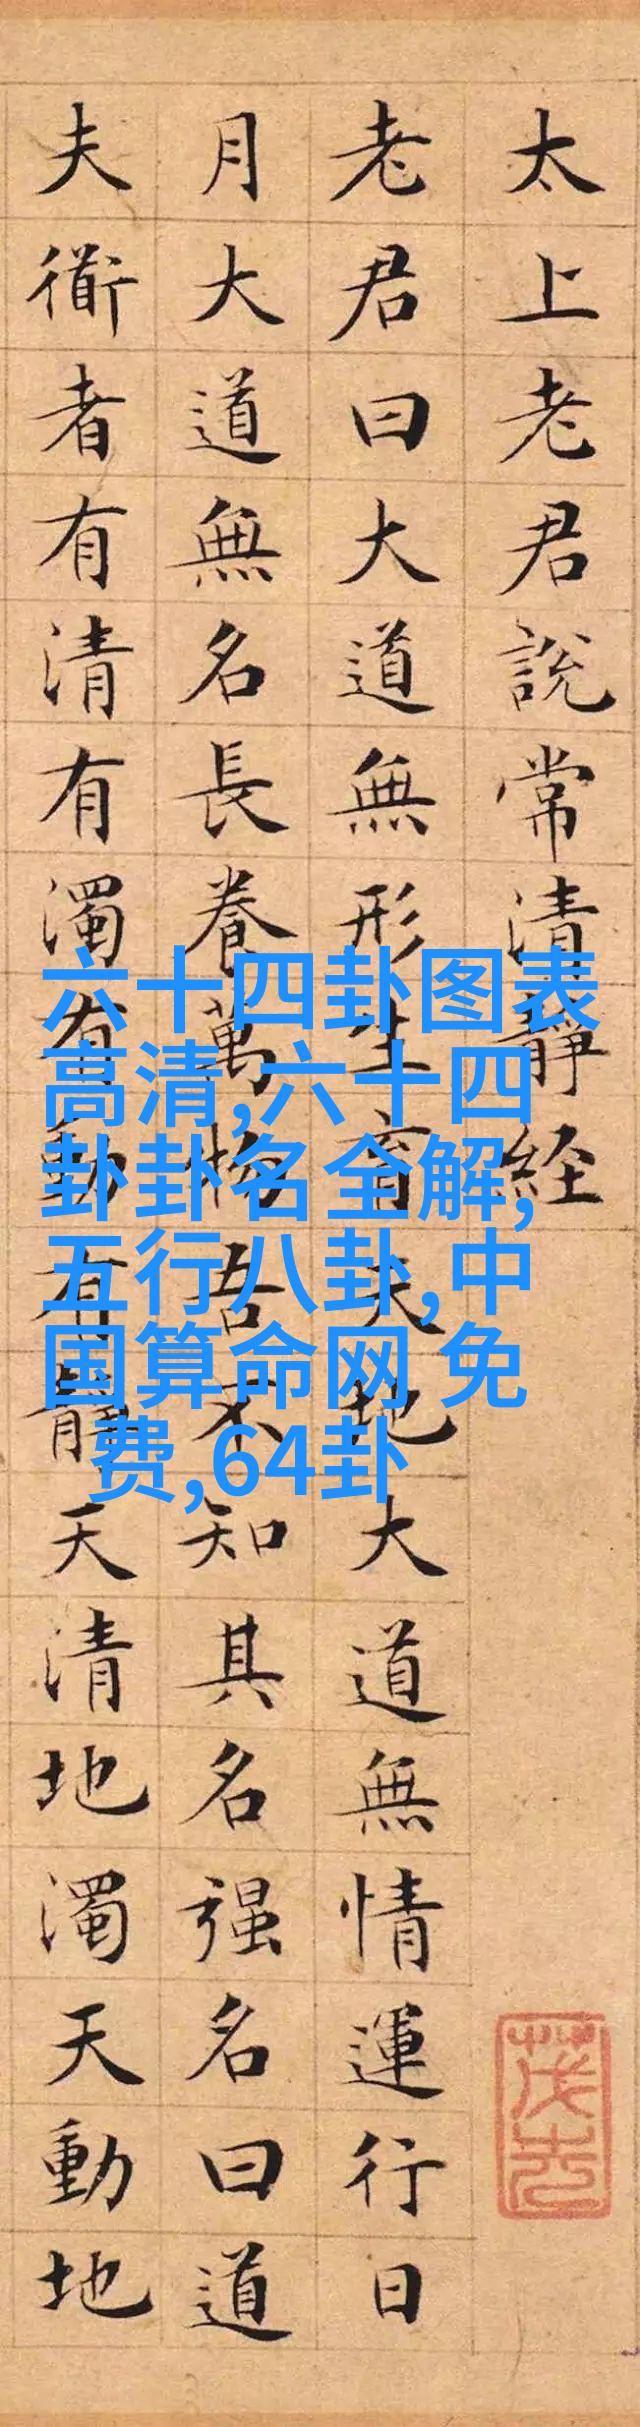 太上老君說常清靜経
老君曰大道無形生育天地大道無情運行日
月大道無名長養萬物吾不知其名强名曰道
夫衜者有清有濁有動有靜天清地濁天動地
六十四卦图表
高清,六十四
卦卦名全解,
五行八卦,中
国算命网 免
费,64卦